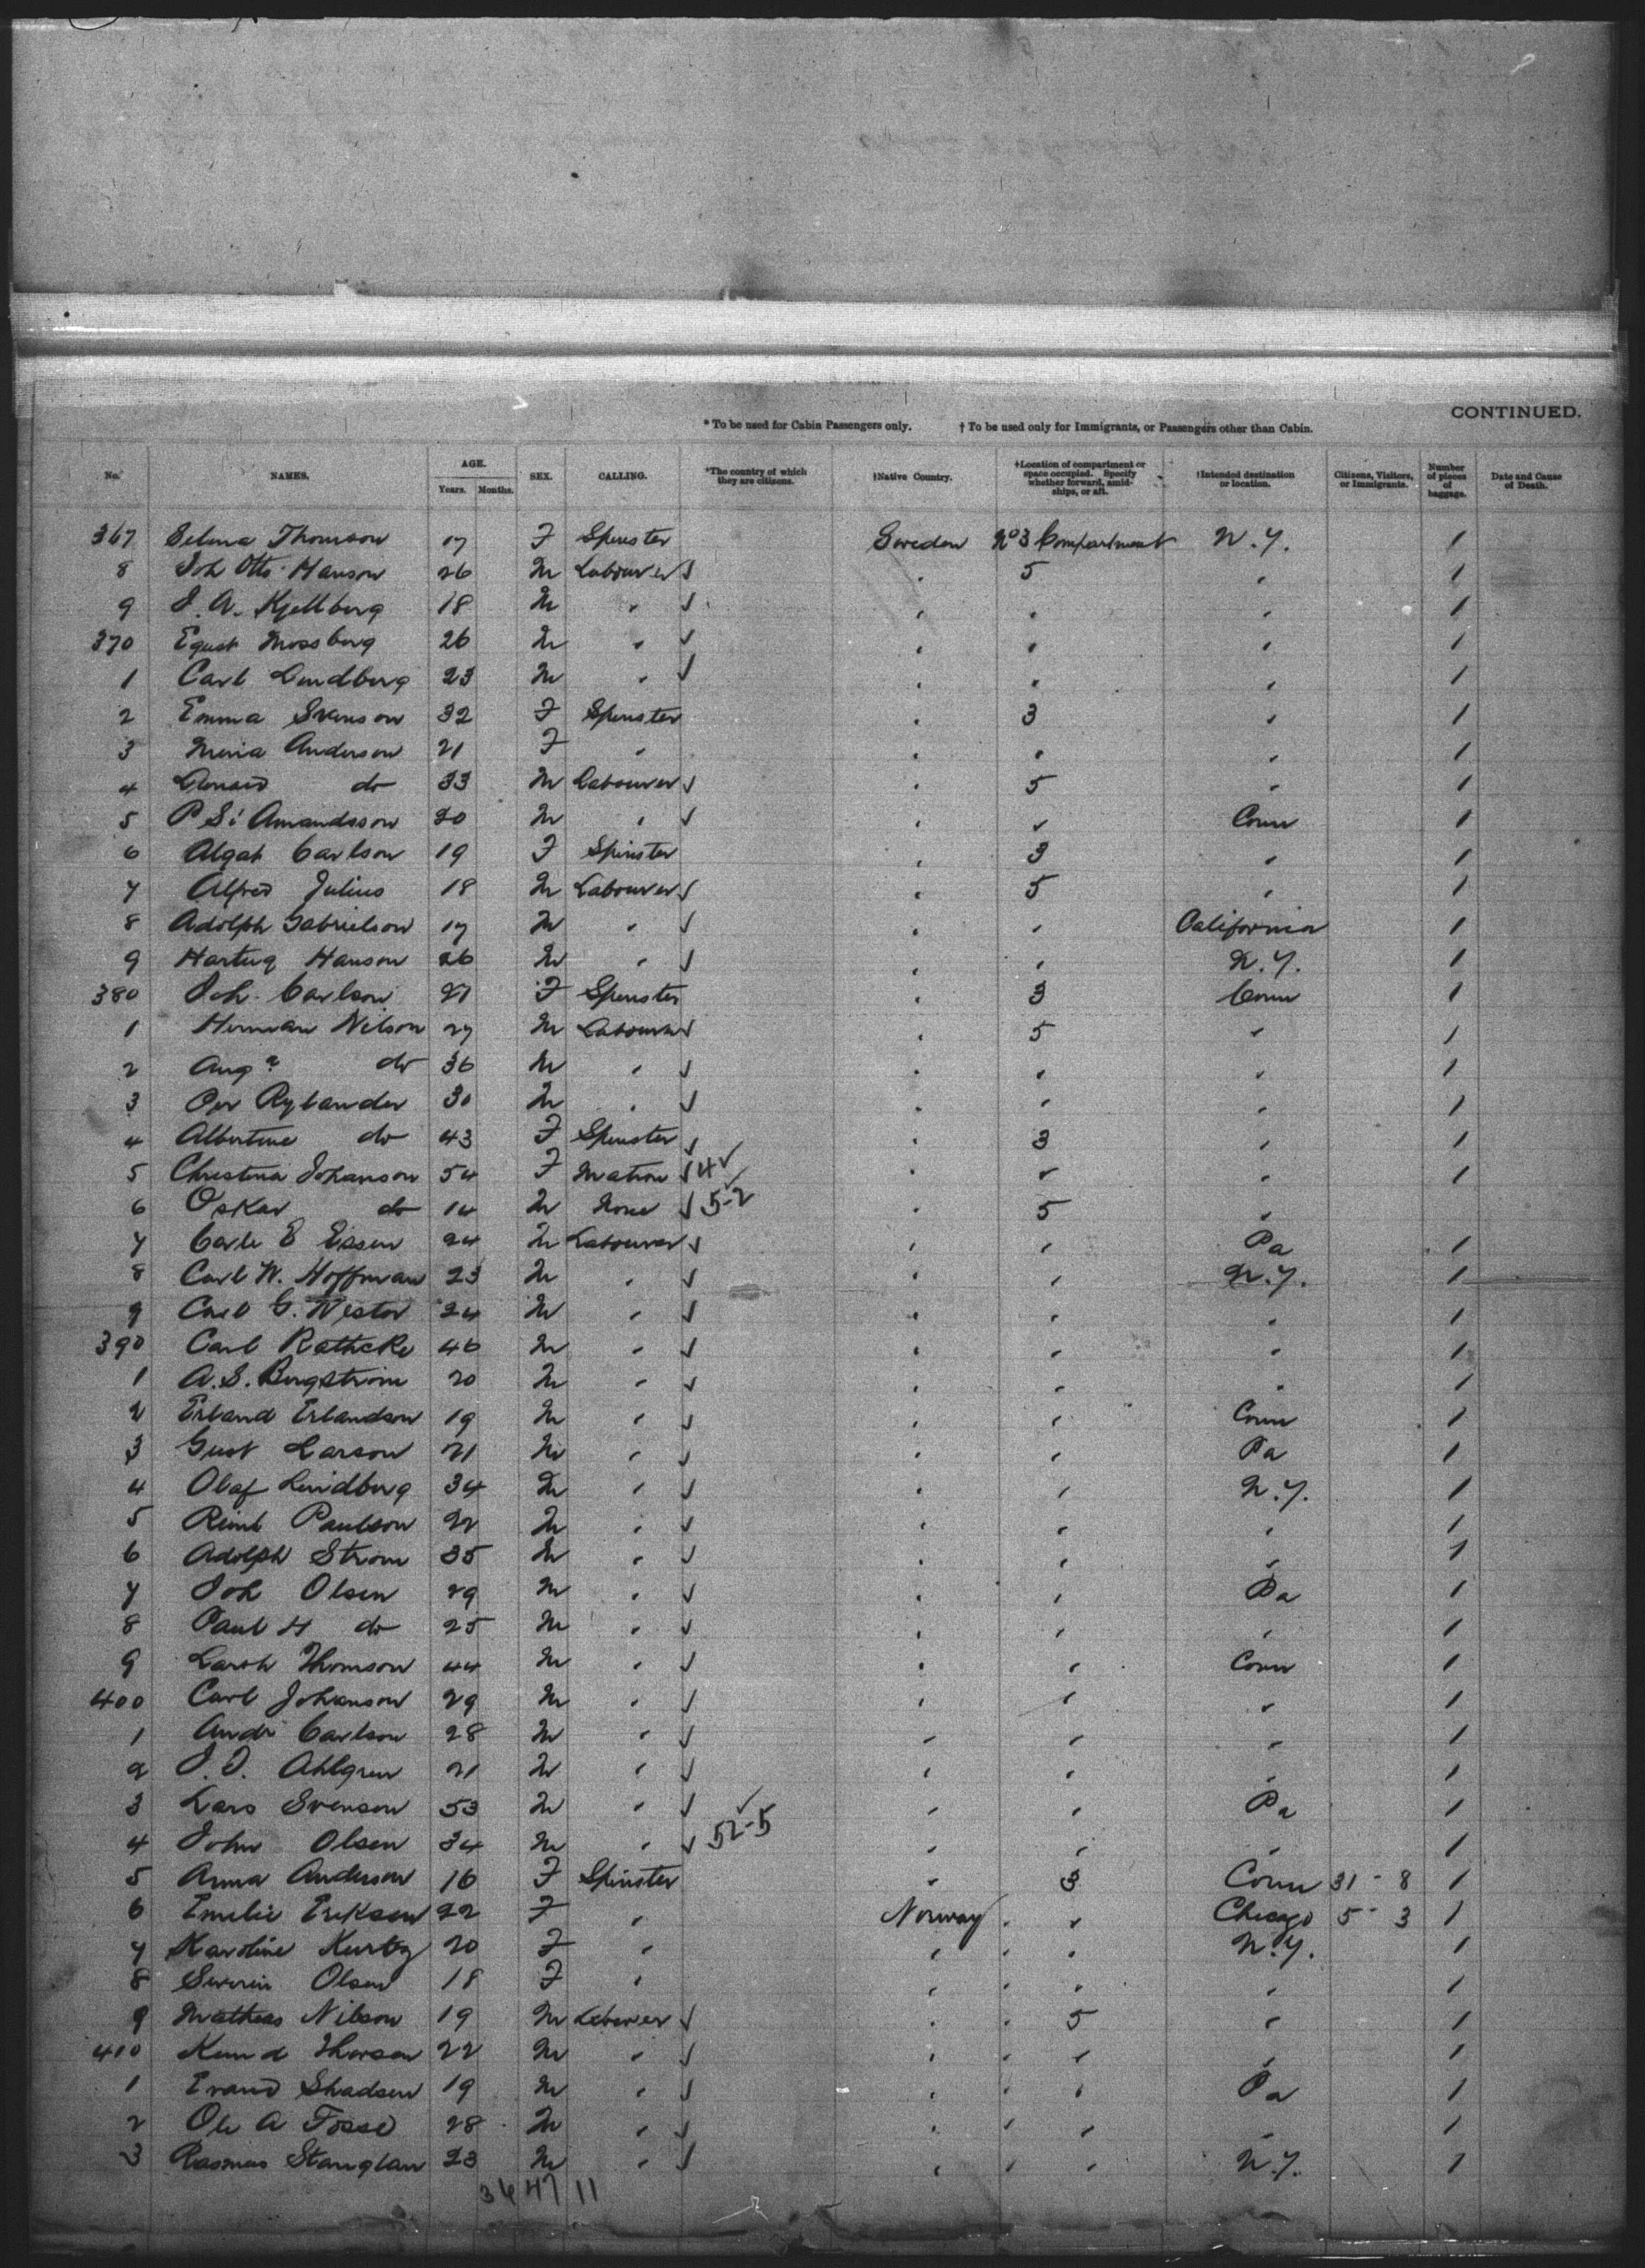 CONTINUED.
* To be used for Cabin Passengers only. † To be used only for Immigrants, or Passengers other than Cabin.
No. NAMES. AGE. Years. Months. SEX. CALLING. *The country of which they are citizens. †Native Country. †Location of compartment or space occupied. Specify whether forward, amidships, or aft. †Intended destination or location. Citizens, Visitors, or Immigrants. Number of pieces of baggage. Date and Cause of Death.
367 Selma Thomson 17 F Spinster Sweden No 3 Compartment N.Y. 1
8 Joh Otto Hanson 26 M Labourer ✓ " 5 " 1
9 J. A. Kjellberg 18 M " ✓ " " " 1
370 Egust Mossberg 26 M " ✓ " " " 1
1 Carl Lindberg 23 M " ✓ " " " 1
2 Emma Svenson 32 F Spinster " 3 " 1
3 Maria Anderson 21 F " " " " 1
4 do 33 M Labourer ✓ " 5 " 1
5 P Amandsson 20 M " ✓ " " Conn 1
6 Carlson 19 F Spinster " 3 " 1
7 Alfred Julius 18 M Labourer ✓ " 5 " 1
8 Adolph Gabrielson 17 M " ✓ " " California 1
9 Hartug Hanson 26 M " ✓ " " N.Y. 1
380 Joh. Carlson 21 F Spinster " 3 Conn 1
1 Herman Nilson 27 M Labourer ✓ " 5 " 1
2 Aug do 36 M " ✓ " " " 1
3 Per Rylander 30 M " ✓ " " " 1
4 Albertine do 43 F Spinster ✓ " 3 " 1
5 Christina Johanson 54 F Matron ✓ 4 ✓ " " " 1
6 Oskar do 14 M None ✓ 5-2 ✓ " 5 "
7 Carle E Essen 24 M Labourer ✓ " " Pa 1
8 Carl W. Hoffman 23 M " ✓ " " N.Y. 1
9 Carl G. Westor 24 M " ✓ " " " 1
390 Carl Rathcke 46 M " ✓ " " " 1
1 A. S. Bergstrom 20 M " ✓ " " " 1
2 Erland Erlandson 19 M " ✓ " " Conn 1
3 Gust Larson 21 M " ✓ " " Pa 1
4 Olaf Lindberg 34 M " ✓ " " N.Y. 1
5 Paulson 22 M " ✓ " " " 1
6 Adolph Strom 35 M " ✓ " " " 1
7 Joh Olsen 29 M " ✓ " " Pa 1
8 Paul H do 25 M " ✓ " " " 1
9 Larsh Thomson 44 M " ✓ " " Conn 1
400 Carl Johanson 29 M " ✓ " " " 1
1 Andr Carlson 28 M " ✓ " " " 1
2 J. J. Ahlgren 21 M " ✓ " " " 1
3 Lars Svenson 53 M " ✓ " " Pa 1
4 John Olsen 34 M " ✓ 52-5 ✓ " " " 1
5 Anna Anderson 16 F Spinster " 3 Conn 31 - 8 1
6 Emelie Eriksen 22 F " Norway " " Chicago 5 - 3 1
7 Karoline Kurtz 20 F " " " " N.Y. 1
8 Severin Olsen 18 F " " " " " 1
9 Mathias Nilson 19 M Labourer ✓ " " 5 " 1
410 Knud Thorsen 22 M " ✓ " " " " 1
1 Shadsen 19 M " ✓ " " " Pa 1
2 Ole A Fosse 28 M " ✓ " " " " 1
3 Rasmus Stanglan 23 M " ✓ " " " N.Y. 1
36 47 11